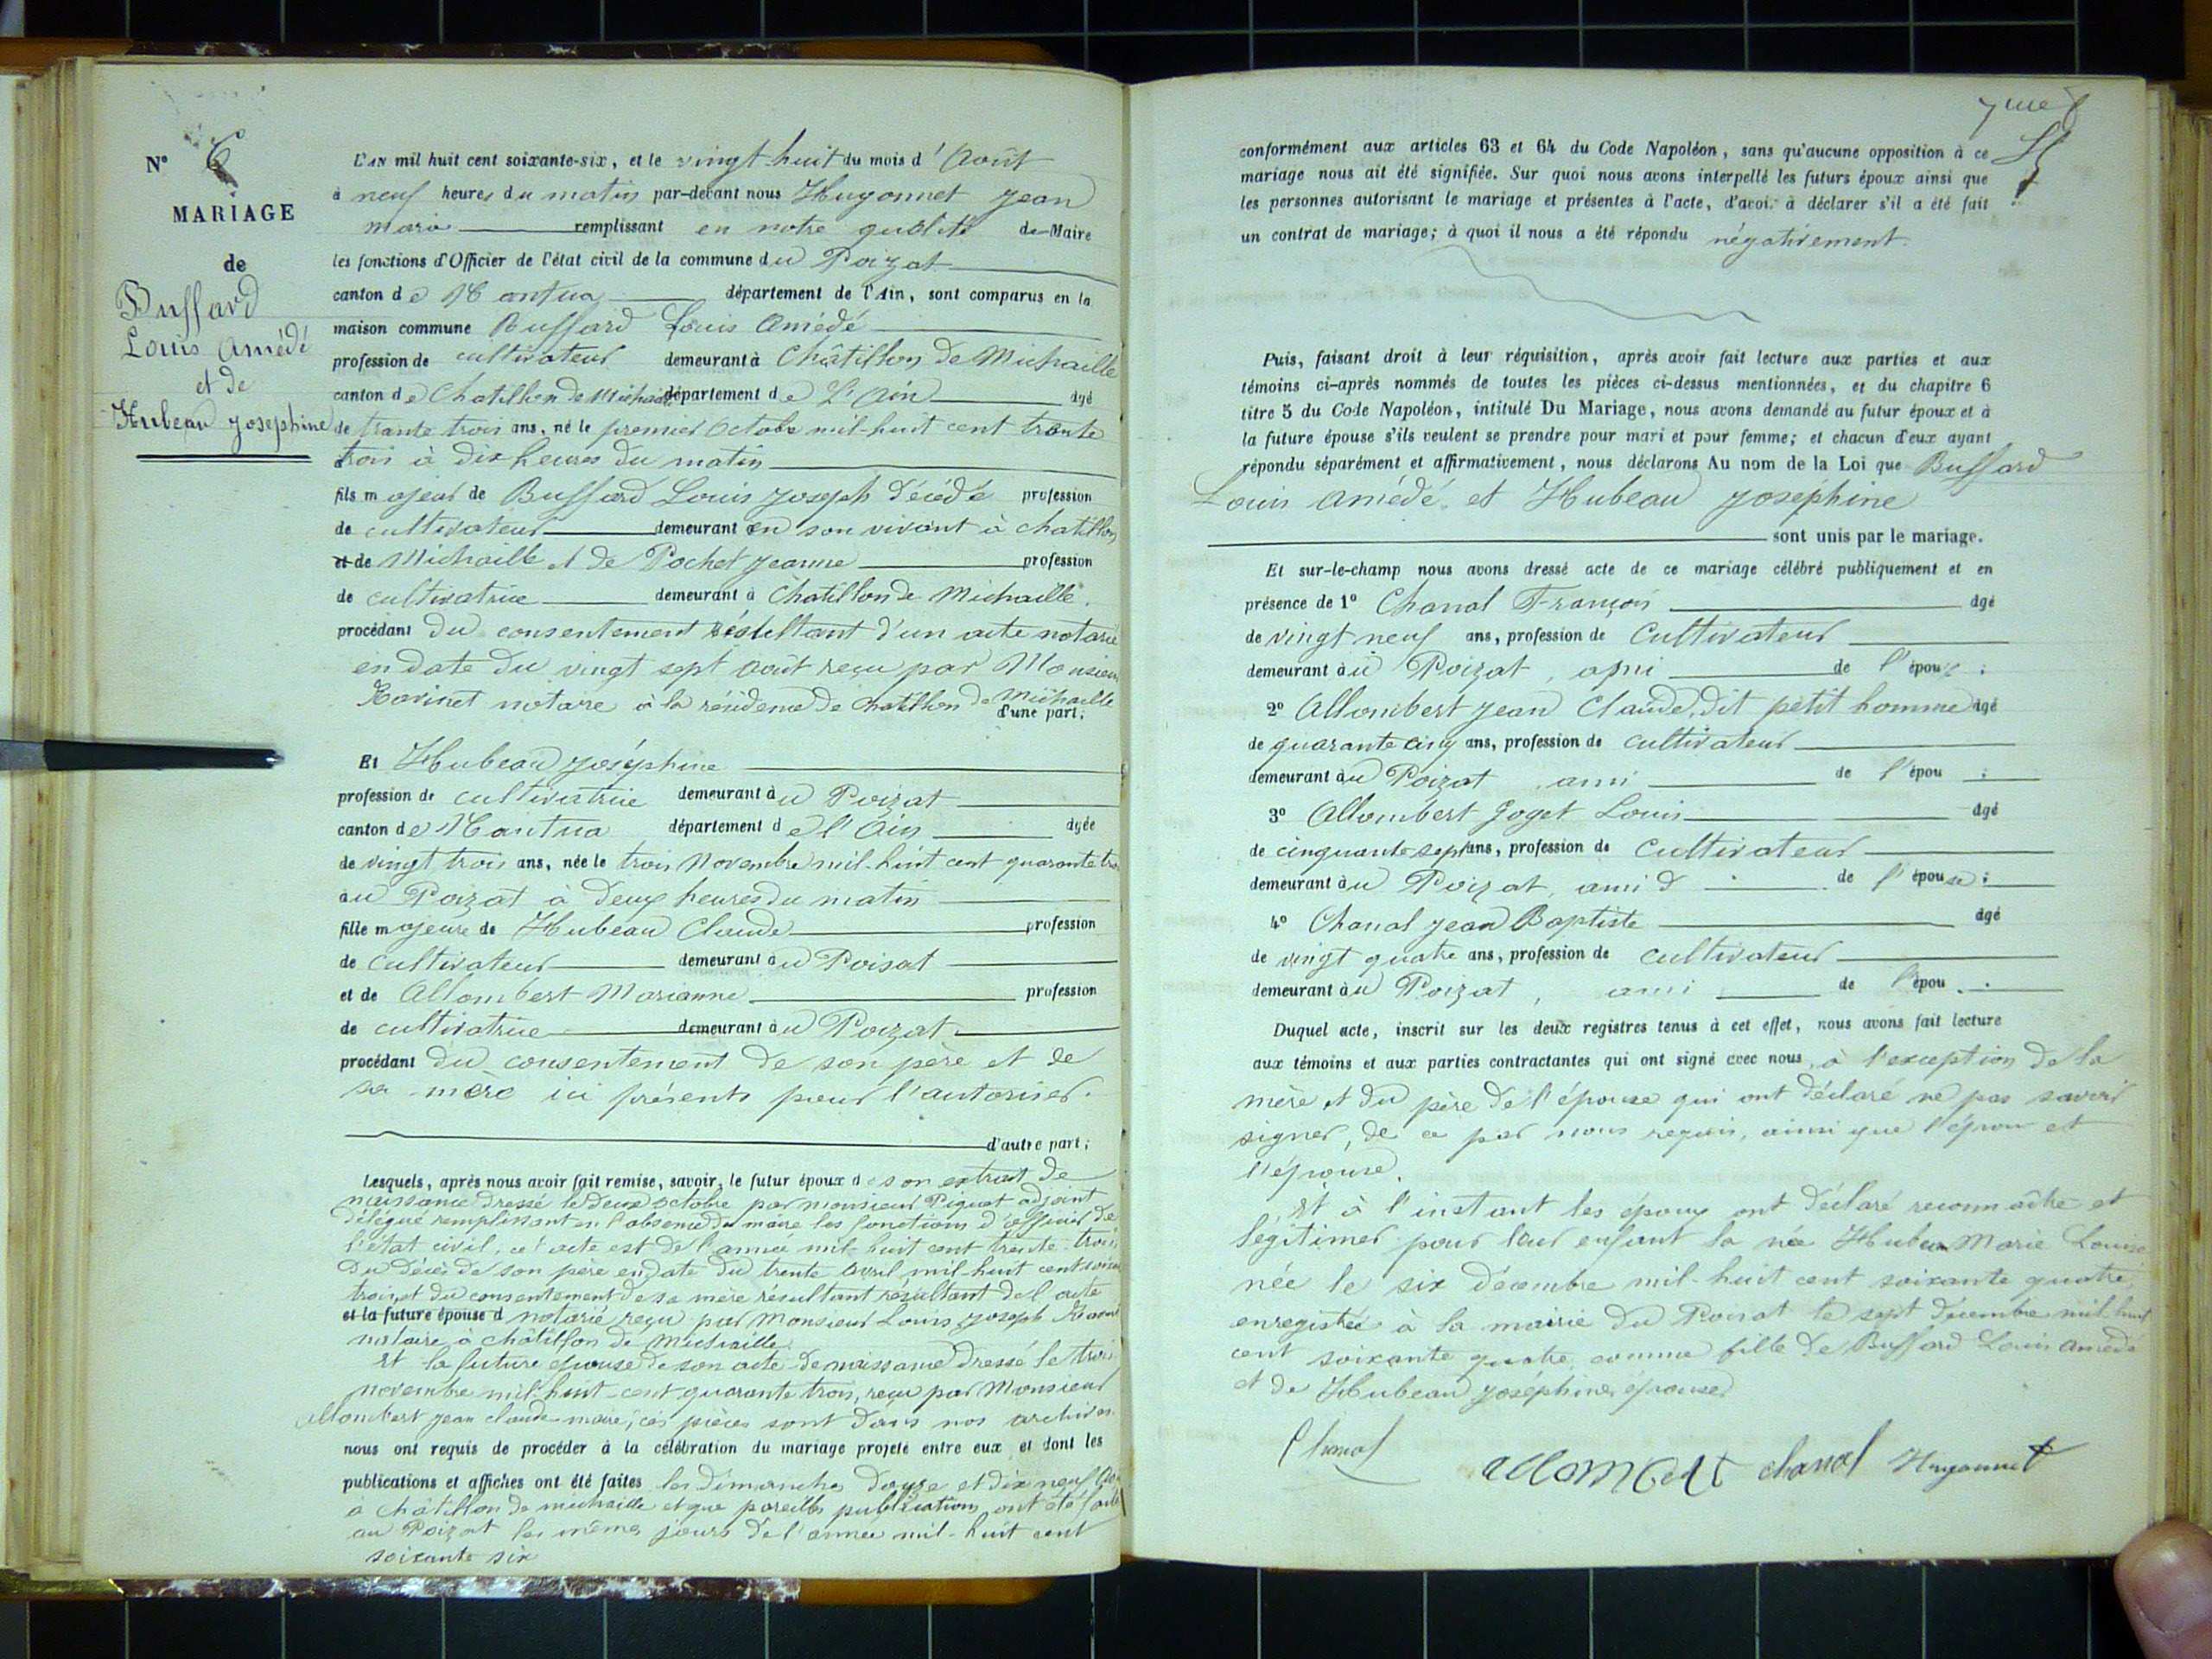 N° 6
MARIAGE
de
Buffard
Louis Amédé
et de
Hubeau Josephine
L'AN mil huit cent soixante-six, et le vingt huit du mois d'Août
à neuf heures du matin par-devant nous Hugonnet Jean
marie remplissant en notre qualité de Maire
les fonctions d'Officier de l'état civil de la commune du Poizat
canton de Nantua département de l'Ain, sont comparus en la
maison commune Buffard Louis Amédé
profession de cultivateur demeurant à Châtillon de Michaille
canton de Chatillon de Michaille département de L'Ain âgé
de trante trois ans, né le premier Octobre mil-huit cent trante
trois à dix heures du matin
fils majeur de Buffard Louis Joseph décédé profession
de cultivateur demeurant en son vivant à chatillon
et de Michaille et de Pochet Jeanne profession
de cultivatrice demeurant à Châtillon de Michaille.
procédant du consentement résultant d'un acte notarié
en date du vingt sept août reçu par Monsieur
notaire à la résidence de Chatillon de Michaille
d'une part;
Et Hubeau Joséphine
profession de cultivatrice demeurant au Poizat
canton de Nantua département de l'Ain âgée
de vingt trois ans, née le trois Novembre mil-huit cent quarante trois
au Poizat à deux heures du matin
fille majeure de Hubeau Claude profession
de cultivateur demeurant au Poisat
et de Allombert Marianne profession
de cultivatrice demeurant au Poizat
procédant du consentement de son père et de
sa mère ici présents pour l'autoriser.
d'autre part;
Lesquels, après nous avoir fait remise, savoir, le futur époux de son extrait de
naissance dressé le deux octobre par monsieur Piquat adjoint
délégué remplissant en l'absence du maire les fonctions d'officier de
l'état civil, cet acte est de l'année mil-huit cent trente-trois,
du décès de son père en date du trente avril mil-huit cent soixante
trois, et du consentement de sa mère résultant résultant de l'acte
et la future épouse d notarié reçu par Monsieur Louis Joseph
notaire à châtillon de Michaille.
Et la future épouse de son acte de naissance dressé le trois
novembre mil-huit-cent quarante trois, reçu par Monsieur
Allombert jean claude maire, ces pièces sont dans nos archives.
nous ont requis de procéder à la célébration du mariage projeté entre eux et dont les
publications et affiches ont été faites les dimanches douze et dix neuf Août
à châtillon de michaille et que pareilles publications ont été faites
au Poizat les mêmes jours de l'année mil-huit cent
soixante six
conformément aux articles 63 et 64 du Code Napoléon, sans qu'aucune opposition à ce
mariage nous ait été signifiée. Sur quoi nous avons interpellé les futurs époux ainsi que
les personnes autorisant le mariage et présentes à l'acte, d'avoir à déclarer s'il a été fait
un contrat de mariage; à quoi il nous a été répondu négativement.
Puis, faisant droit à leur réquisition, après avoir fait lecture aux parties et aux
témoins ci-après nommés de toutes les pièces ci-dessus mentionnées, et du chapitre 6
titre 5 du Code Napoléon, intitulé Du Mariage, nous avons demandé au futur époux et à
la future épouse s'ils veulent se prendre pour mari et pour femme; et chacun d'eux ayant
répondu séparément et affirmativement, nous déclarons Au nom de la Loi que Buffard
Louis Amédé et Hubeau Joséphine
sont unis par le mariage.
Et sur-le-champ nous avons dressé acte de ce mariage célébré publiquement et en
présence de 1° Chanal François âgé
de vingt neuf ans, profession de Cultivateur
demeurant au Poizat, ami de l'épouse;
2° Allombert Jean Claude, dit petit homme âgé
de quarante cinq ans, profession de cultivateur
demeurant au Poizat, ami de l'épou ;
3° Allombert Goget Louis âgé
de cinquante sept ans, profession de Cultivateur
demeurant au Poizat, ami d de l'épouse;
4° Chanal Jean Baptiste âgé
de vingt quatre ans, profession de cultivateur
demeurant au Poizat, ami de l'épou .
Duquel acte, inscrit sur les deux registres tenus à cet effet, nous avons fait lecture
aux témoins et aux parties contractantes qui ont signé avec nous, à l'exception de la
mère et du père de l'épouse qui ont déclaré ne pas savoir
signer, de ce par nous requis, ainsi que l'époux et
l'épouse.
Et à l'instant les époux ont déclaré reconnaître et
légitimer pour leur enfant la née Hubeau Marie Louise
née le six décembre mil-huit cent soixante quatre
enregistée à la mairie du Poizat le sept décembre mil huit
cent soixante quatre, comme fille de Buffard Louis Amédé
et de Hubeau Joséphine, épouse
Chanal allombert chanal Hugonnet